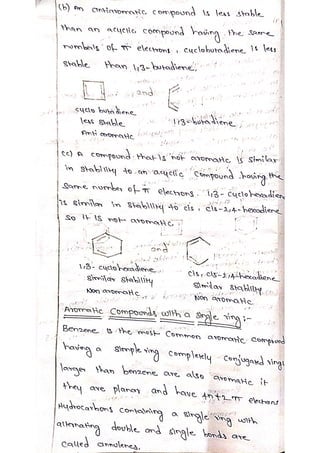 (b) An antiaromatic compound is less stable
than an acyclic compound having the same
numbers of π electrons, cyclobutadiene is less
stable than 1,3-butadiene.
and
cyclo butadiene
less stable
Anti aromatic
1,3-butadiene
(c) A compound that is not aromatic is similar
in stability to an acyclic compound having the
same number of π electrons. 1,3-cyclohexadien
is similar in stability to cis, cis-2,4-hexadiene
so it is not aromatic.
and
1,3-cyclohexadiene
similar stability
Non aromatic
cis, cis-2,4-hexadiene
similar stability
Non aromatic
Aromatic Compounds with a single ring:-
Benzene is the most common aromatic compound
having a simple ring completely conjugated rings
larger than benzene are also aromatic if
they are planar and have 4n+2 π electrons
Hydrocarbons containing a single ring with
alternating double and single bonds are
called annulenes.